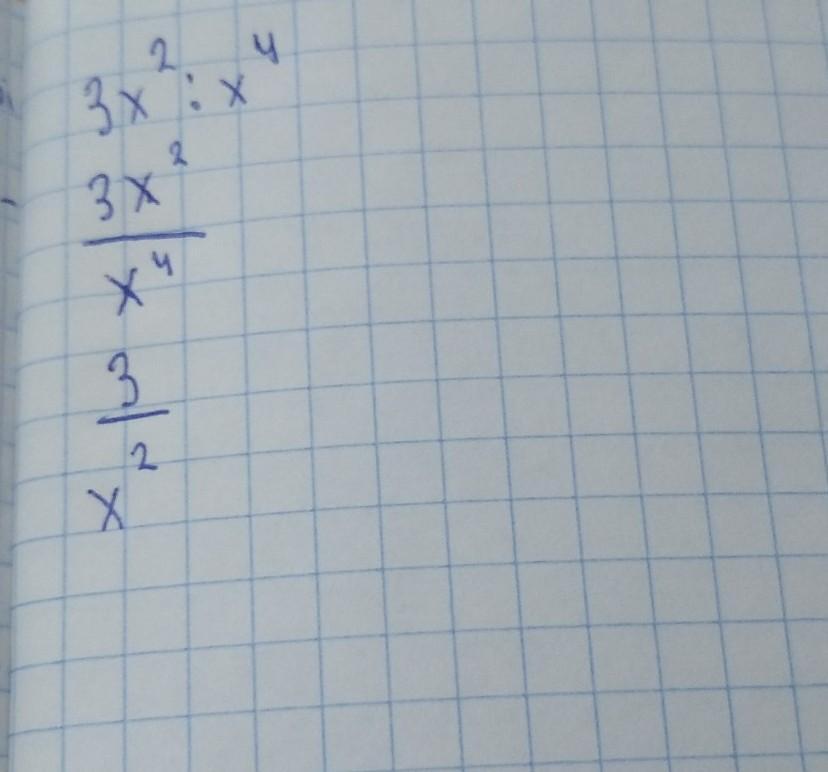 3x² : x⁴
3x²
x⁴
3
x²